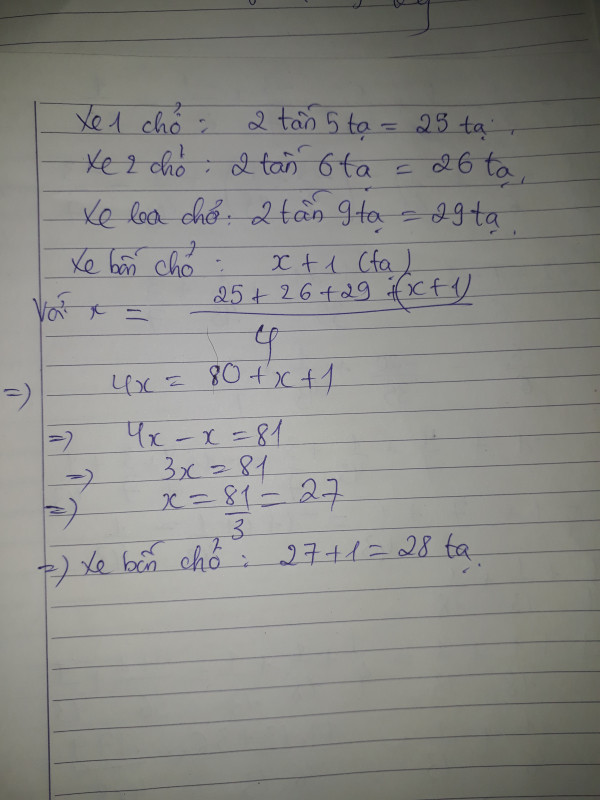 Xe 1 chở : 2 tấn 5 tạ = 25 tạ.
Xe 2 chở : 2 tấn 6 tạ = 26 tạ.
Xe ba chở : 2 tấn 9 tạ = 29 tạ.
Xe bốn chở : x + 1 (tạ)
Và x = (25 + 26 + 29 + (x + 1)) / 4
=) 4x = 80 + x + 1
=) 4x - x = 81
=) 3x = 81
=) x = 81/3 = 27
=) Xe bốn chở : 27 + 1 = 28 tạ.